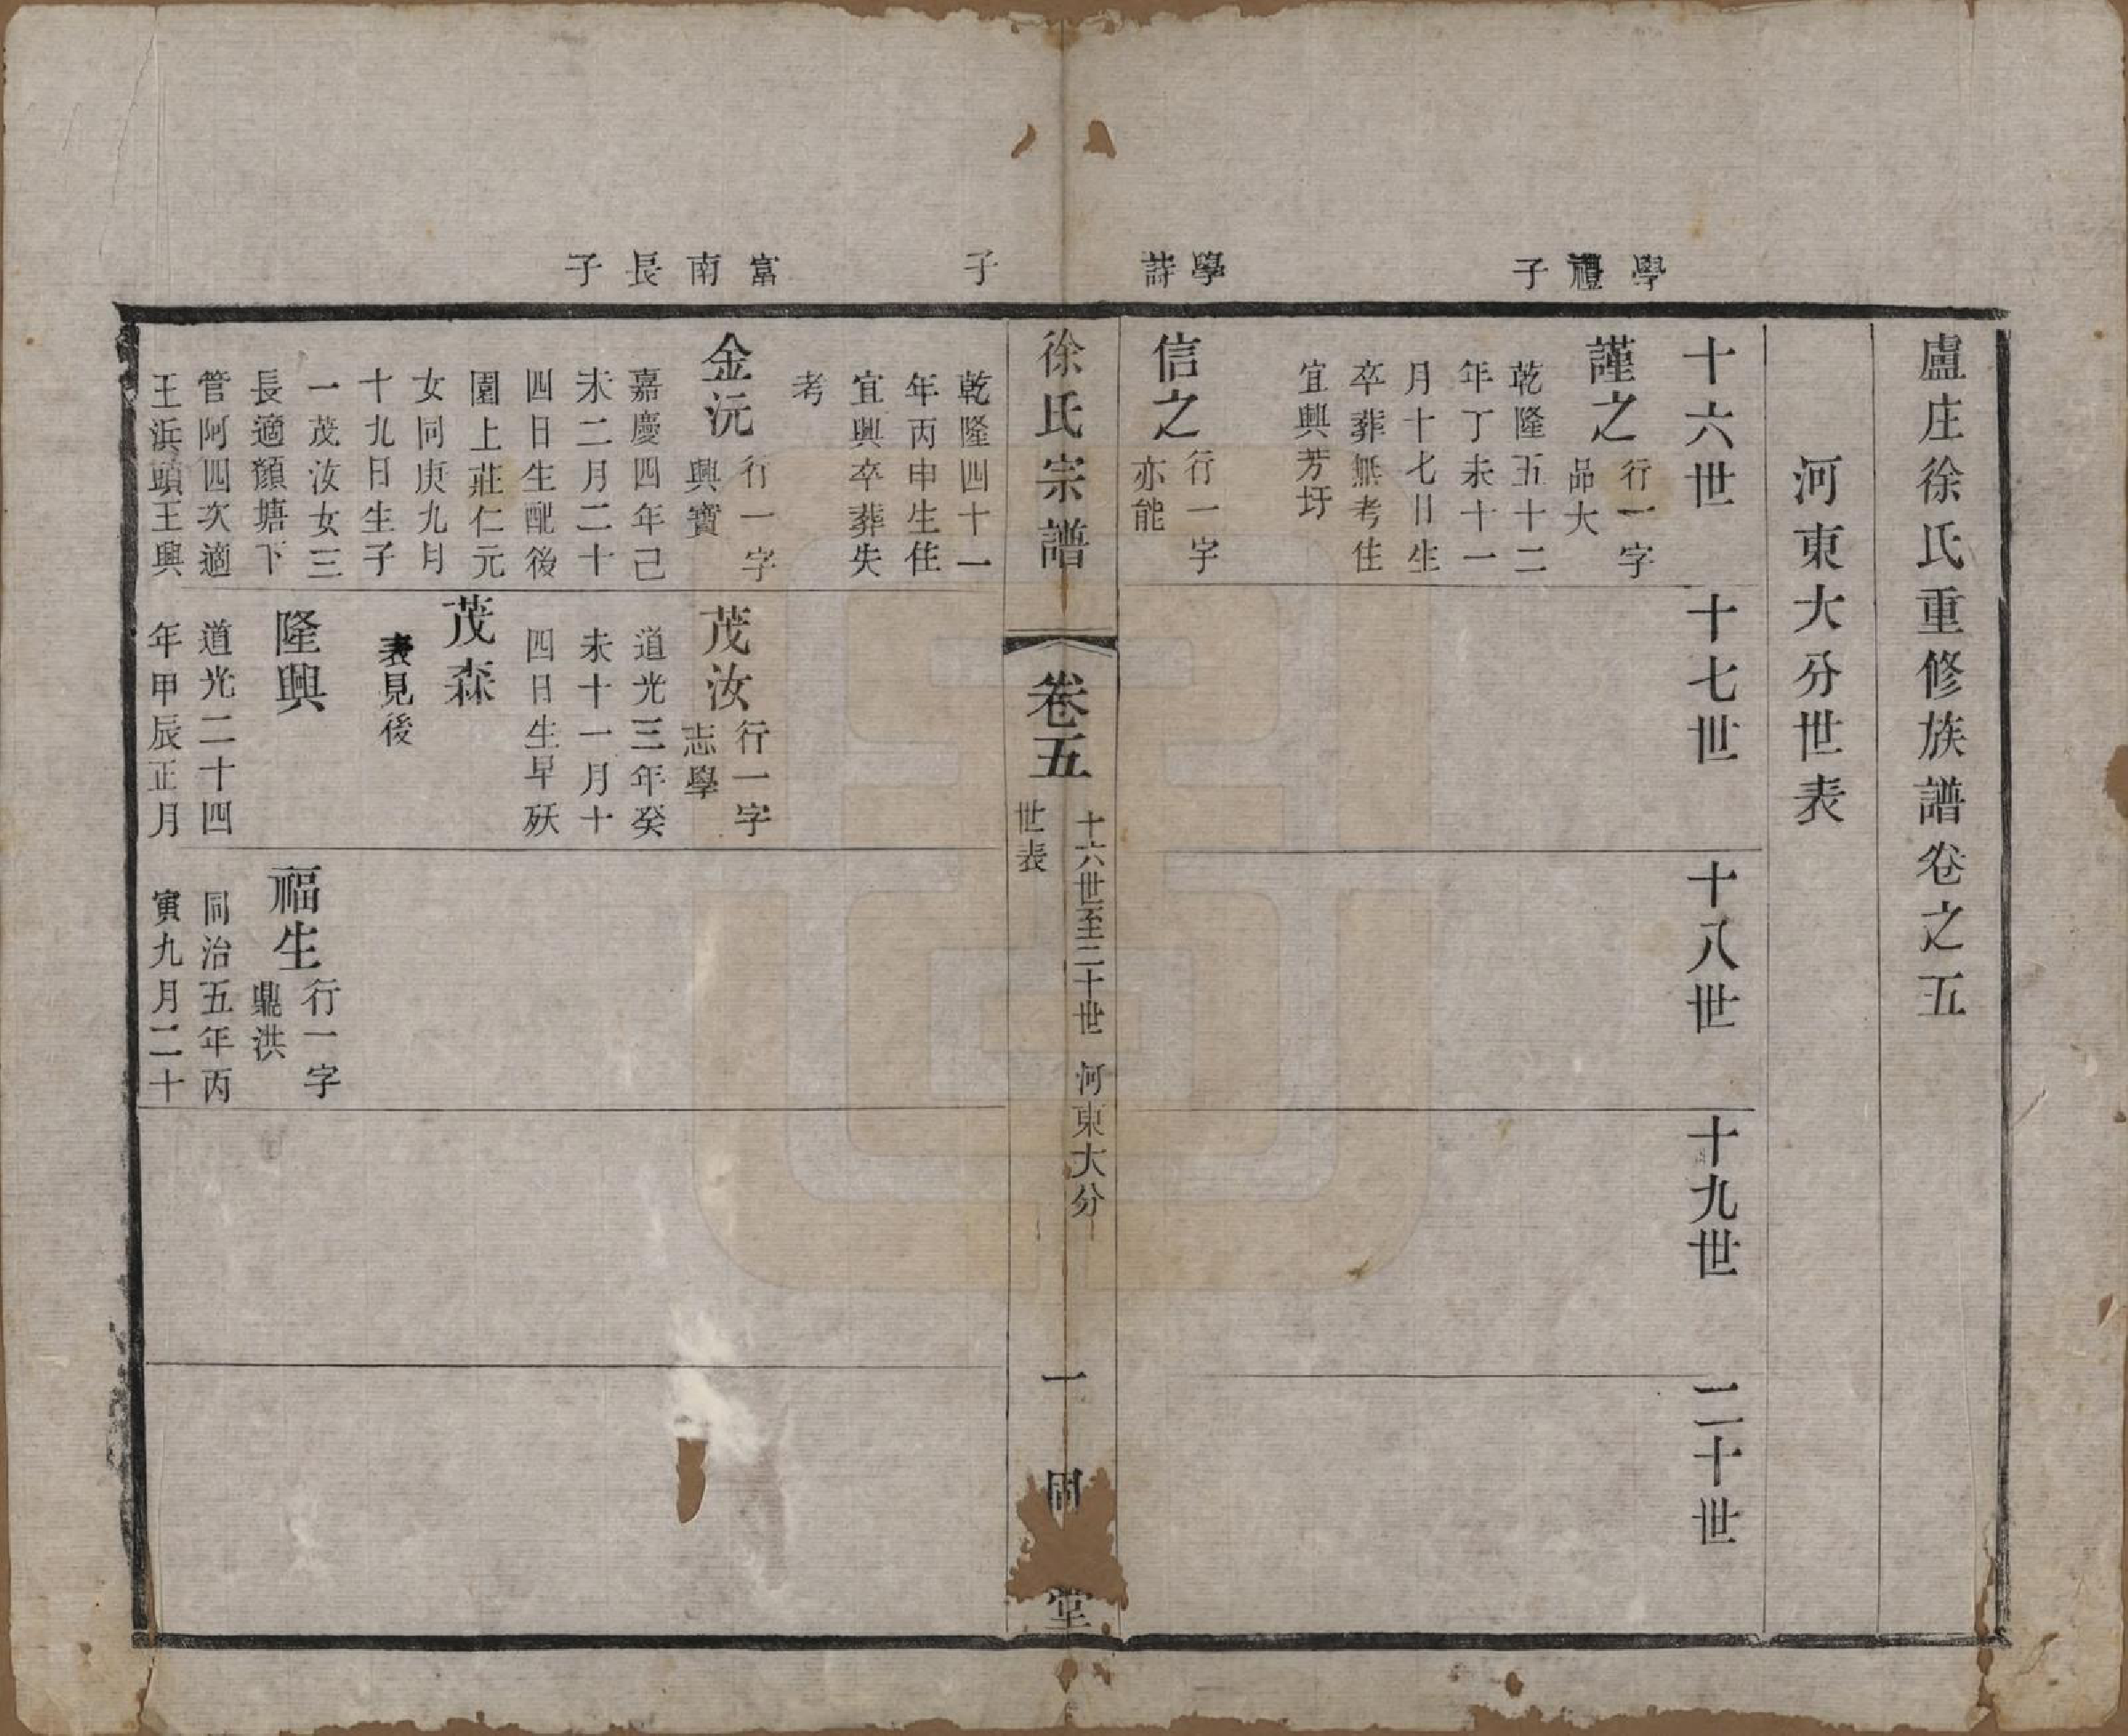 盧庄徐氏重修族譜卷之五
河東大分世表
十六世
十七世
十八世
十九世
二十世
學禮子
謹之
行一字
品大
乾隆五十二
年丁未十一
月十七日生
卒葬無考住
宜興芳圩
學詩
信之
行一字
亦能
徐氏宗譜
卷五
十六世至二十世 河東大分
世表
一
堂
子
乾隆四十一
年丙申生住
宜興卒葬失
考
富南長子
金沅
行一字
興寶
嘉慶四年己
未二月二十
四日生配後
園上莊仁元
女同庚九月
十九日生子
一茂汝女三
長適顏塘下
管阿四次適
王浜頭王興
茂汝
行一字
志學
道光三年癸
未十一月十
四日生早殀
茂森
表見後
隆興
道光二十四
年甲辰正月
福生
行一字
鼎洪
同治五年丙
寅九月二十